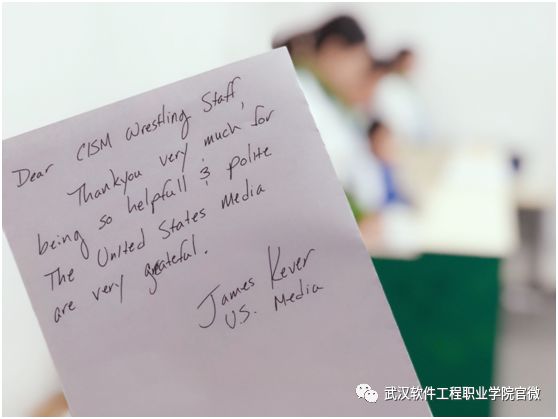 Dear CISM Wrestling Staff,
Thankyou very much for
being so helpfull & polite
The United States Media
are very grateful.
James Kever
U.S. Media
武汉软件工程职业学院官微